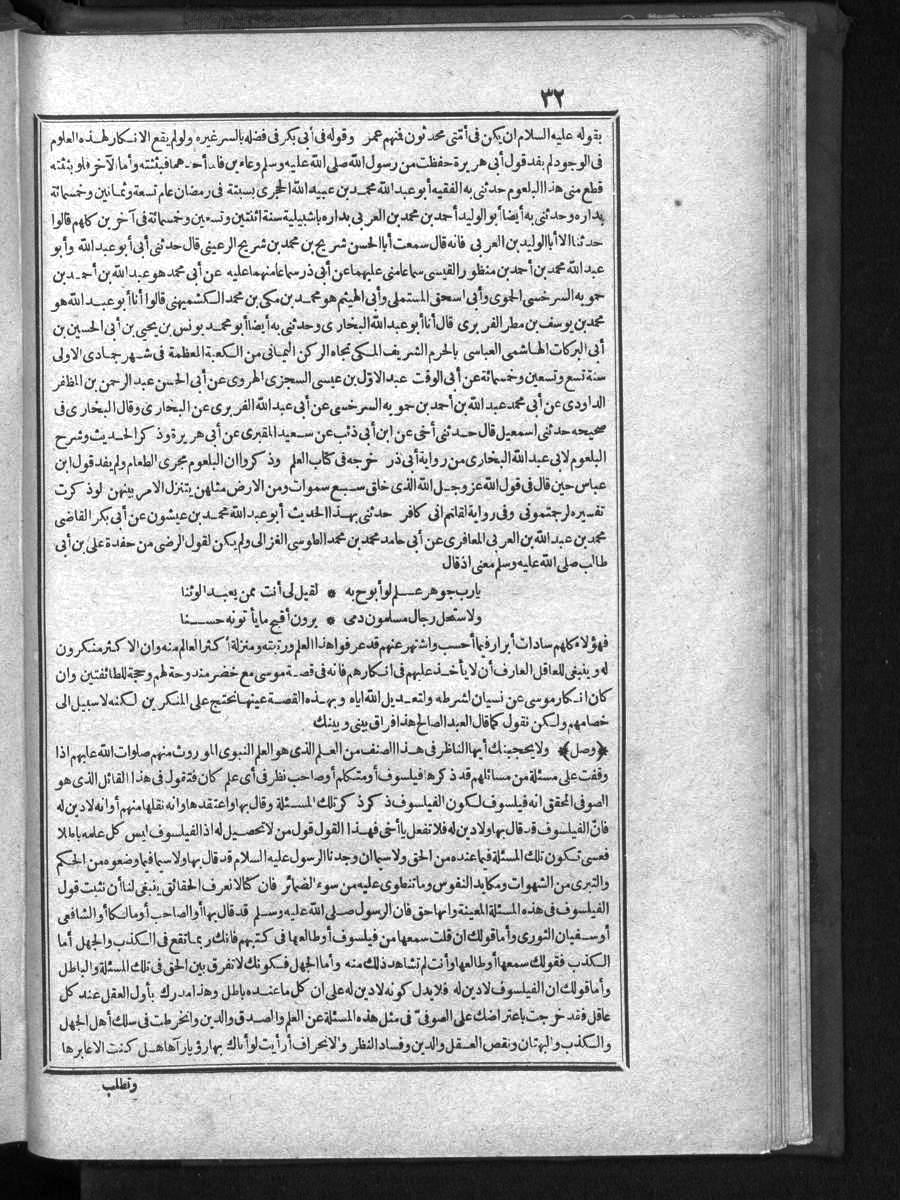 ٣٢
بقوله عليه السلام ان يكن فى أمتى محدثون فمنهم عمر وقوله فى أبى بكر فى فضله بالسر غيره ولو لم يقع الانكار لهذه العلوم
فى الوجود لم يفد قول أبى هريرة حفظت من رسول الله صلى الله عليه وسلم وعاءين فاما أحدهما فبثثته وأما الآخر فلو بثثته
قطع منى هذا البلعوم حدثنى به الفقيه أبو عبد الله محمد بن عبيد الله الحجرى بسبتة فى رمضان عام تسعة وثمانين وخمسمائة
بداره وحدثنى به أيضا أبو الوليد أحمد بن محمد بن العربى بداره باشبيلية سنة اثنتين وتسعين وخمسمائة فى آخرين كلهم قالوا
حدثنا الا أبا الوليد بن العربى فانه قال سمعت أبا الحسن شريح بن محمد بن شريح الرعينى قال حدثنى أبى أبو عبد الله وأبو
عبد الله محمد بن أحمد بن منظور القيسى سماعا منى عليهما عن أبى ذر سماعا منهما عليه عن أبى محمد هو عبد الله بن أحمد بن
حمويه السرخسى الحموى وأبى اسحق المستملى وأبى الهيثم هو محمد بن مكى بن محمد الكشميهنى قالوا أنا أبو عبد الله هو
محمد بن يوسف بن مطر الفربرى قال أنا أبو عبد الله البخارى وحدثنى به أيضا أبو محمد يونس بن يحيى بن أبى الحسين بن
أبى البركات الهاشمى العباسى بالحرم الشريف المكى تجاه الركن اليمانى من الكعبة المعظمة فى شهر جمادى الاولى
سنة تسع وتسعين وخمسمائة عن أبى الوقت عبد الاوّل بن عيسى السجزى الهروى عن أبى الحسن عبد الرحمن بن المظفر
الداودى عن أبى محمد عبد الله بن أحمد بن حمويه السرخسى عن أبى عبد الله الفربرى عن البخارى وقال البخارى فى
صحيحه حدثنى اسمعيل قال حدثنى أخى عن ابن أبى ذئب عن سعيد المقبرى عن أبى هريرة وذكر الحديث وشرح
البلعوم لابى عبد الله البخارى من رواية أبى ذر خرجه فى كتاب العلم وذكروا ان البلعوم مجرى الطعام ولم يفد قول ابن
عباس حين قال فى قول الله عز وجل الله الذى خلق سبع سموات ومن الارض مثلهن يتنزل الامر بينهن لو ذكرت
تفسيره لرجمتمونى وفى رواية لقلتم انى كافر حدثنى بهذا الحديث أبو عبد الله محمد بن عيشون عن أبى بكر القاضى
محمد بن عبد الله بن العربى المعافرى عن أبى حامد محمد بن محمد الطوسى الغزالى ولم يكن لقول الرضى من حفدة على بن أبى
طالب صلى الله عليه وسلم معنى اذ قال
يا رب جوهر علم لو أبوح به * لقيل لى أنت ممن يعبد الوثنا
ولاستحل رجال مسلمون دمى * يرون أقبح ما يأتونه حسنا
فهؤلاء كلهم سادات أبرار فيما أحسب واشتهر عنهم قد عرفوا هذا العلم ورتبته ومنزلة أكثر العالم منه وان الاكثر منكرون
له وينبغى للعاقل العارف أن لا يأخذ عليهم فى انكارهم فانه فى قصة موسى مع خضر مندوحة لهم وحجة للطائفتين وان
كان انكار موسى عن نسيان لشرطه ولتعديل الله اياه وبهذه القصة عينها نحتج على المنكرين لكنه لا سبيل الى
خصامهم ولكن نقول كما قال العبد الصالح هذا فراق بينى وبينك
﴿وصل﴾ ولا يحجبنك أيها الناظر فى هذا الصنف من العلم الذى هو العلم النبوى الموروث منهم صلوات الله عليهم اذا
وقفت على مسئلة من مسائلهم قد ذكرها فيلسوف أو متكلم أو صاحب نظر فى أى علم كان فتقول فى هذا القائل الذى هو
الصوفى المحقق انه فيلسوف لكون الفيلسوف ذكر ذكر تلك المسئلة وقال بها واعتقدها وانه نقلها منهم أو انه لا دين له
فانّ الفيلسوف قد قال بها ولا دين له فلا تفعل يا أخى فهذا القول قول من لا تحصيل له اذ الفيلسوف ليس كل علمه باطلا
فعسى تكون تلك المسئلة فيما عنده من الحق ولا سيما ان وجدنا الرسول عليه السلام قد قال بها ولا سيما فيما وضعوه من الحكم
والتبرى من الشهوات ومكايد النفوس وما تنطوى عليه من سوء الضمائر فان كنا لا نعرف الحقائق ينبغى لنا أن نثبت قول
الفيلسوف فى هذه المسئلة المعينة وانها حق فان الرسول صلى الله عليه وسلم قد قال بها أو الصاحب أو مالكا أو الشافعى
أو سفيان الثورى وأما قولك ان قلت سمعها من فيلسوف أو طالعها فى كتبهم فانك ربما تقع فى الكذب والجهل أما
الكذب فقولك سمعها أو طالعها وأنت لم تشاهد ذلك منه وأما الجهل فكونك لا تفرق بين الحق فى تلك المسئلة والباطل
وأما قولك ان الفيلسوف لا دين له فلا يدل كونه لا دين له على ان كل ما عنده باطل وهذا مدرك بأول العقل عند كل
عاقل فقد خرجت باعتراضك على الصوفىّ فى مثل هذه المسئلة عن العلم والصدق والدين وانخرطت فى سلك أهل الجهل
والكذب والبهتان ونقص العقل والدين وفساد النظر والانحراف أرأيت لو أتاك بها رؤيا رآها هل كنت الا عابرها
وتطلب